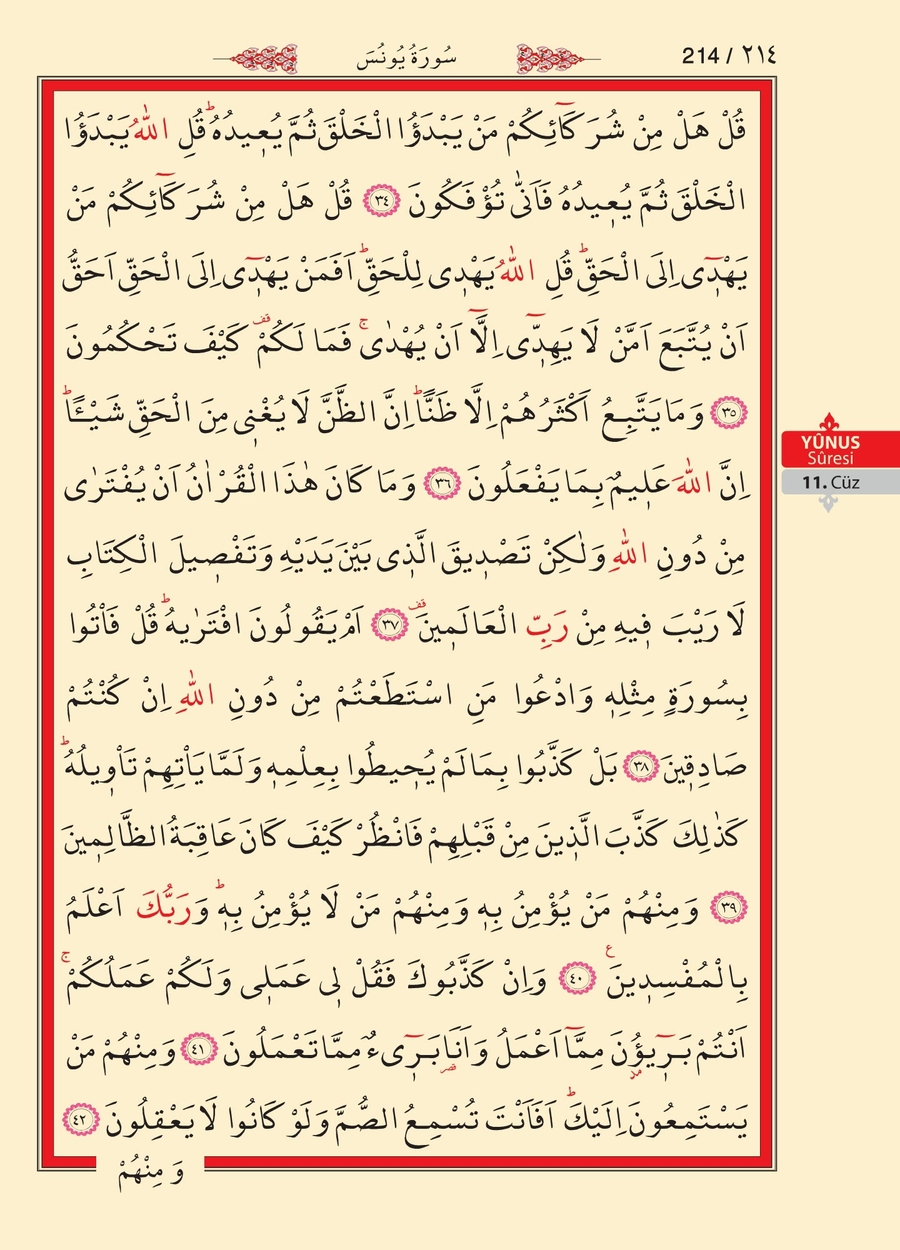 214 / ٢١٤
سُورَةُ يُونُسَ
قُلْ هَلْ مِنْ شُرَكَٓائِكُمْ مَنْ يَبْدَؤُا الْخَلْقَ ثُمَّ يُعٖيدُهُۜ قُلِ اللّٰهُ يَبْدَؤُا
الْخَلْقَ ثُمَّ يُعٖيدُهُ فَاَنّٰى تُؤْفَكُونَ ﴿٣٤﴾ قُلْ هَلْ مِنْ شُرَكَٓائِكُمْ مَنْ
يَهْدٖٓى اِلَى الْحَقِّۜ قُلِ اللّٰهُ يَهْدٖى لِلْحَقِّۜ اَفَمَنْ يَهْدٖٓى اِلَى الْحَقِّ اَحَقُّ
اَنْ يُتَّبَعَ اَمَّنْ لَا يَهِدّٖٓى اِلَّٓا اَنْ يُهْدٰىۚ فَمَا لَكُمْࣞ كَيْفَ تَحْكُمُونَ
﴿٣٥﴾ وَمَا يَتَّبِعُ اَكْثَرُهُمْ اِلَّا ظَنًّاۜ اِنَّ الظَّنَّ لَا يُغْنٖى مِنَ الْحَقِّ شَيْـًٔاۜ
اِنَّ اللّٰهَ عَلٖيمٌ بِمَا يَفْعَلُونَ ﴿٣٦﴾ وَمَا كَانَ هٰذَا الْقُرْاٰنُ اَنْ يُفْتَرٰى
مِنْ دُونِ اللّٰهِ وَلٰكِنْ تَصْدٖيقَ الَّذٖى بَيْنَ يَدَيْهِ وَتَفْصٖيلَ الْكِتَابِ
لَا رَيْبَ فٖيهِ مِنْ رَبِّ الْعَالَمٖينَࣞ ﴿٣٧﴾ اَمْ يَقُولُونَ افْتَرٰيهُۜ قُلْ فَأْتُوا
بِسُورَةٍ مِثْلِهٖ وَادْعُوا مَنِ اسْتَطَعْتُمْ مِنْ دُونِ اللّٰهِ اِنْ كُنْتُمْ
صَادِقٖينَ ﴿٣٨﴾ بَلْ كَذَّبُوا بِمَا لَمْ يُحٖيطُوا بِعِلْمِهٖ وَلَمَّا يَأْتِهِمْ تَأْوٖيلُهُۜ
كَذٰلِكَ كَذَّبَ الَّذٖينَ مِنْ قَبْلِهِمْ فَانْظُرْ كَيْفَ كَانَ عَاقِبَةُ الظَّالِمٖينَ
﴿٣٩﴾ وَمِنْهُمْ مَنْ يُؤْمِنُ بِهٖ وَمِنْهُمْ مَنْ لَا يُؤْمِنُ بِهٖۜ وَرَبُّكَ اَعْلَمُ
بِالْمُفْسِدٖينَ ع ﴿٤٠﴾ وَاِنْ كَذَّبُوكَ فَقُلْ لٖى عَمَلٖى وَلَكُمْ عَمَلُكُمْۚ
اَنْتُمْ بَرٖٓيؤُنَ مِمَّٓا اَعْمَلُ وَاَنَا۬ بَرٖٓىءٌ مِمَّا تَعْمَلُونَ ﴿٤١﴾ وَمِنْهُمْ مَنْ
يَسْتَمِعُونَ اِلَيْكَۜ اَفَاَنْتَ تُسْمِعُ الصُّمَّ وَلَوْ كَانُوا لَا يَعْقِلُونَ ﴿٤٢﴾
وَ مِنْهُمْ
YÛNUS
Sûresi
11. Cüz